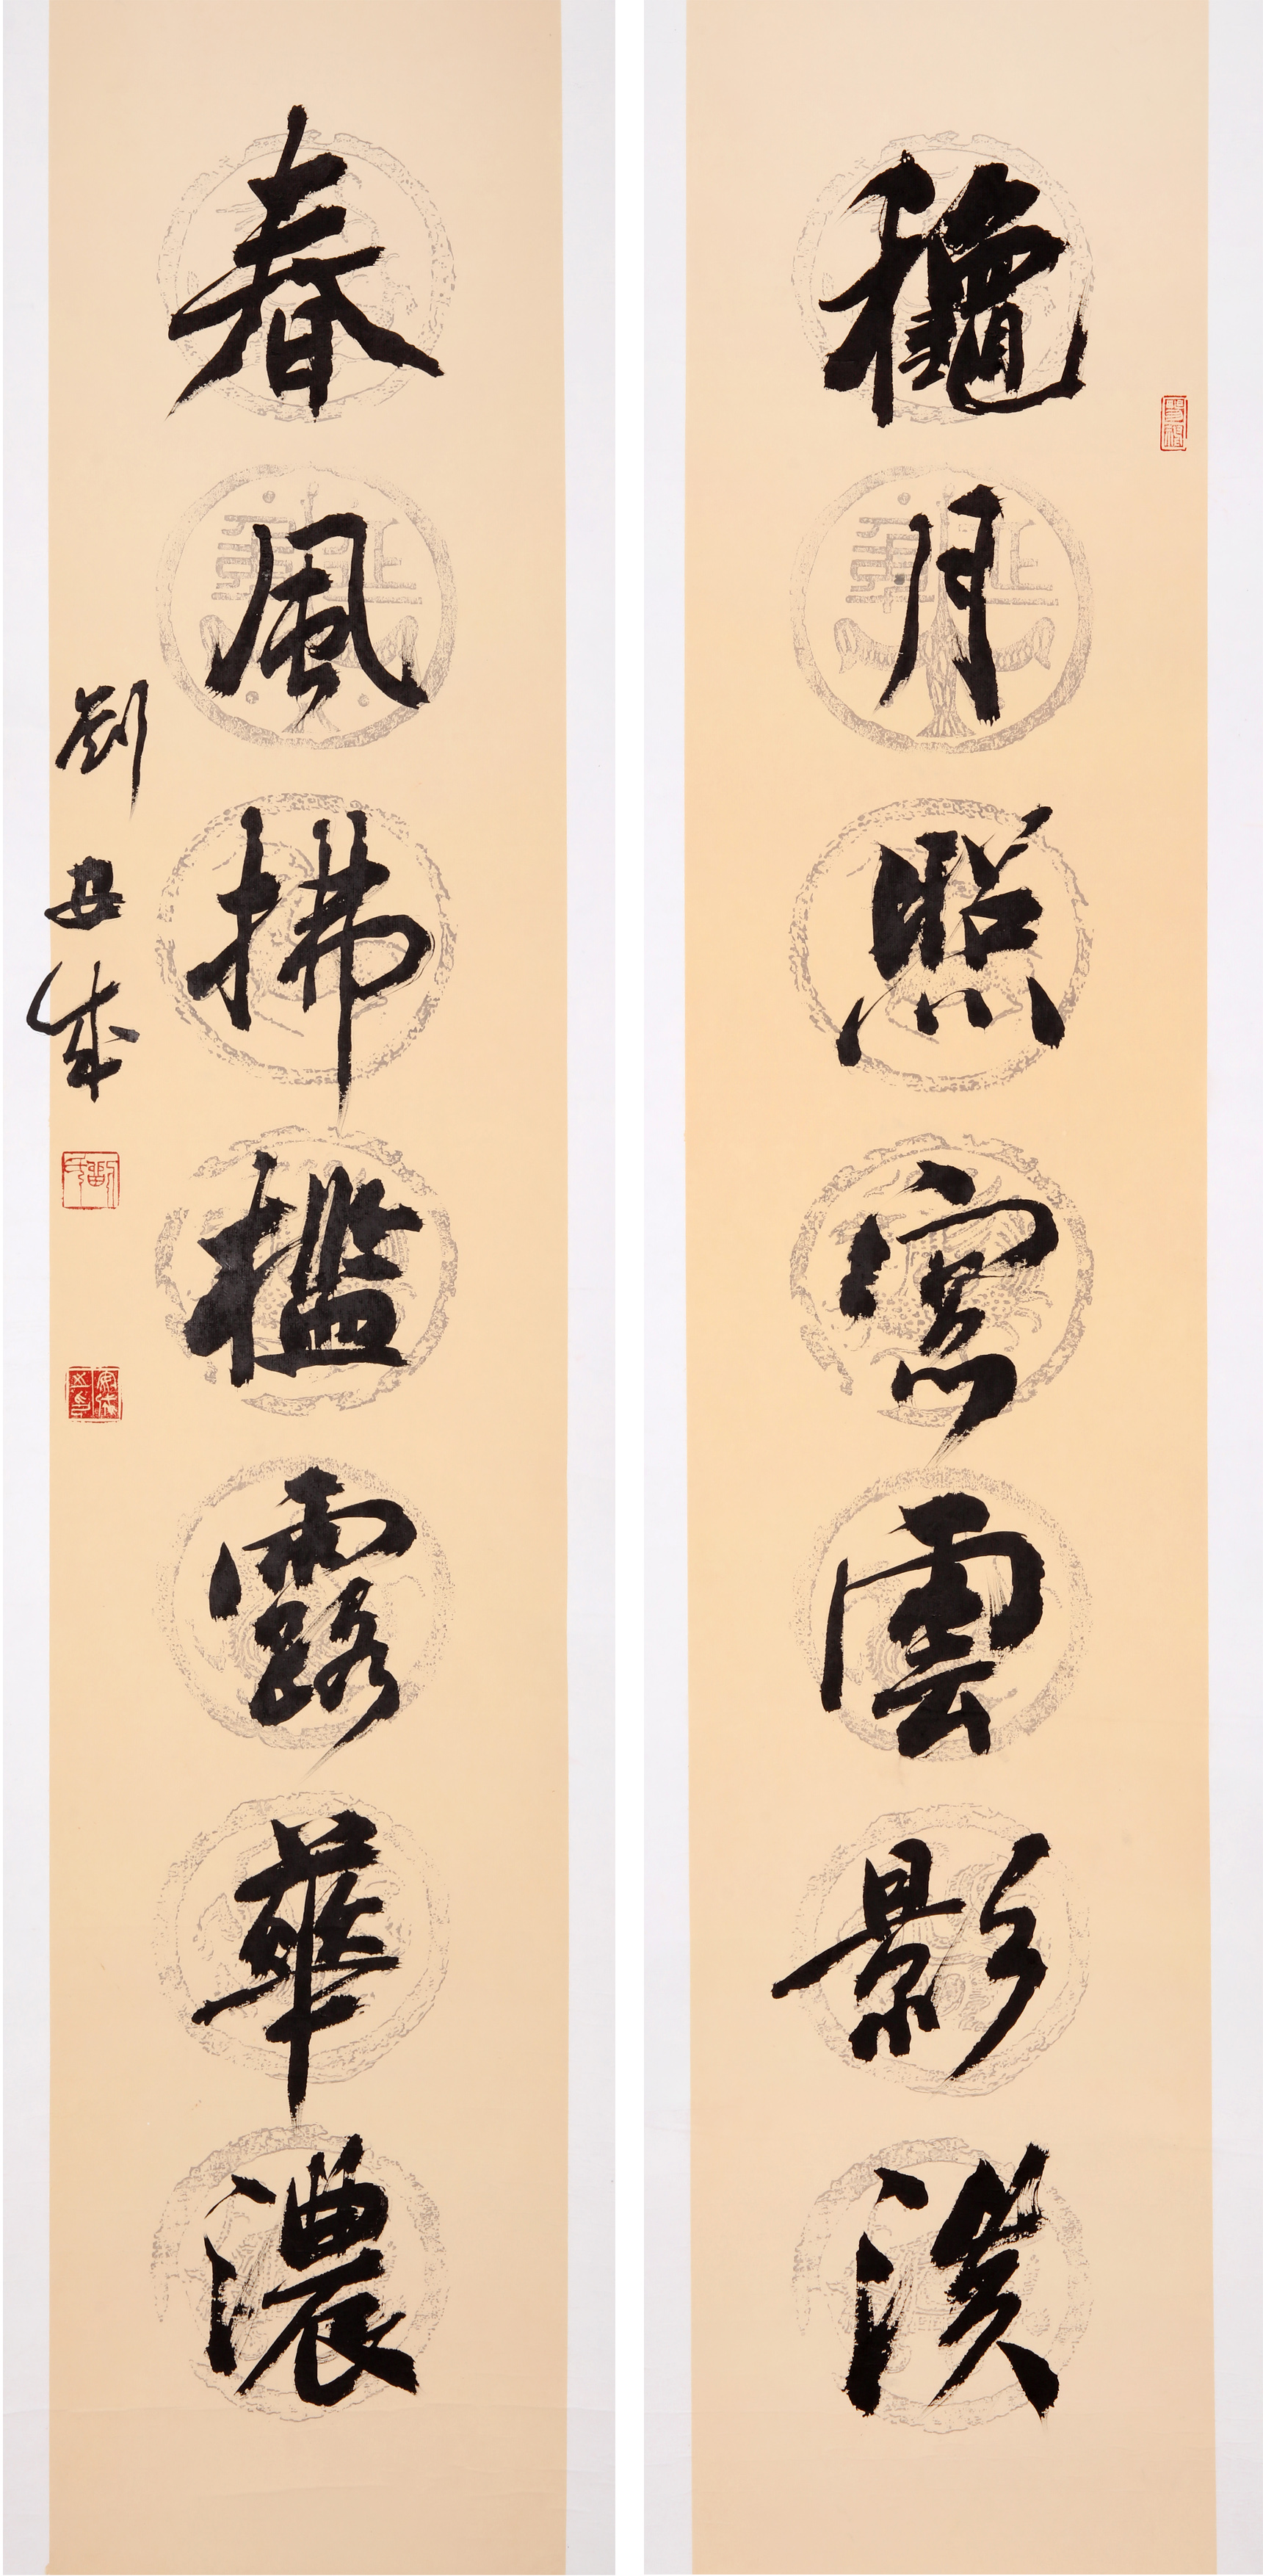 龝月照窓雲影淡
春風拂檻露華濃
劉安成